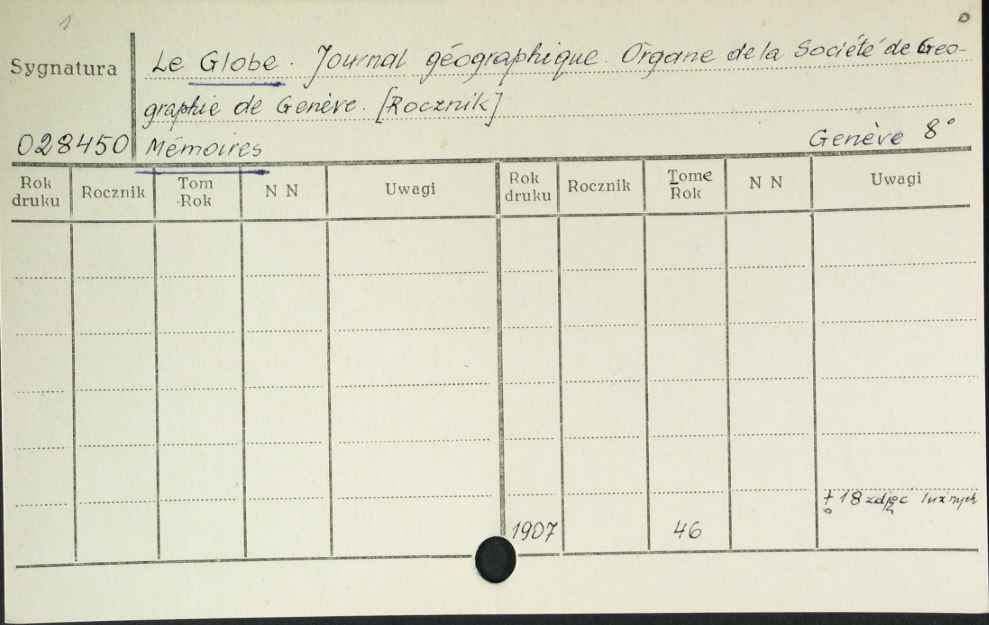 1
0
Sygnatura
Le Globe. Journal géographique. Organe de la Société de Geo-
graphie de Genève. [Rocznik]
028450 Mémoires Genève 8°
Rok druku Rocznik Tom Rok N N Uwagi Rok druku Rocznik Tome Rok N N Uwagi
+ 18 zdjęć luźnych
1907 46